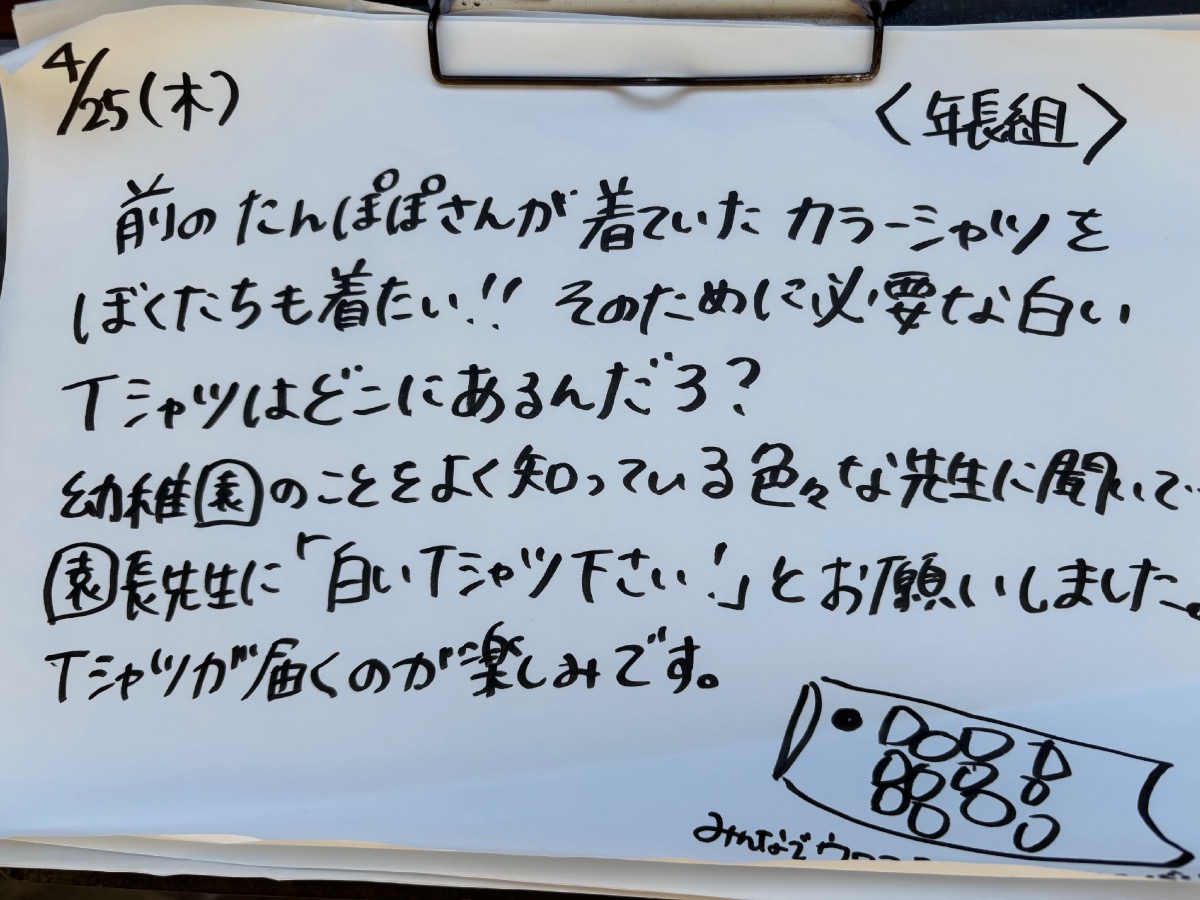 4/25(木)
〈年長組〉
前のたんぽぽさんが着ていたカラーシャツを
ぼくたちも着たい!! そのために必要な白い
Tシャツはどこにあるんだろ?
幼稚園のことをよく知っている色々な先生に聞いて…
園長先生に「白いTシャツ下さい!」とお願いしました。
Tシャツが届くのが楽しみです。
みんなでウロコ